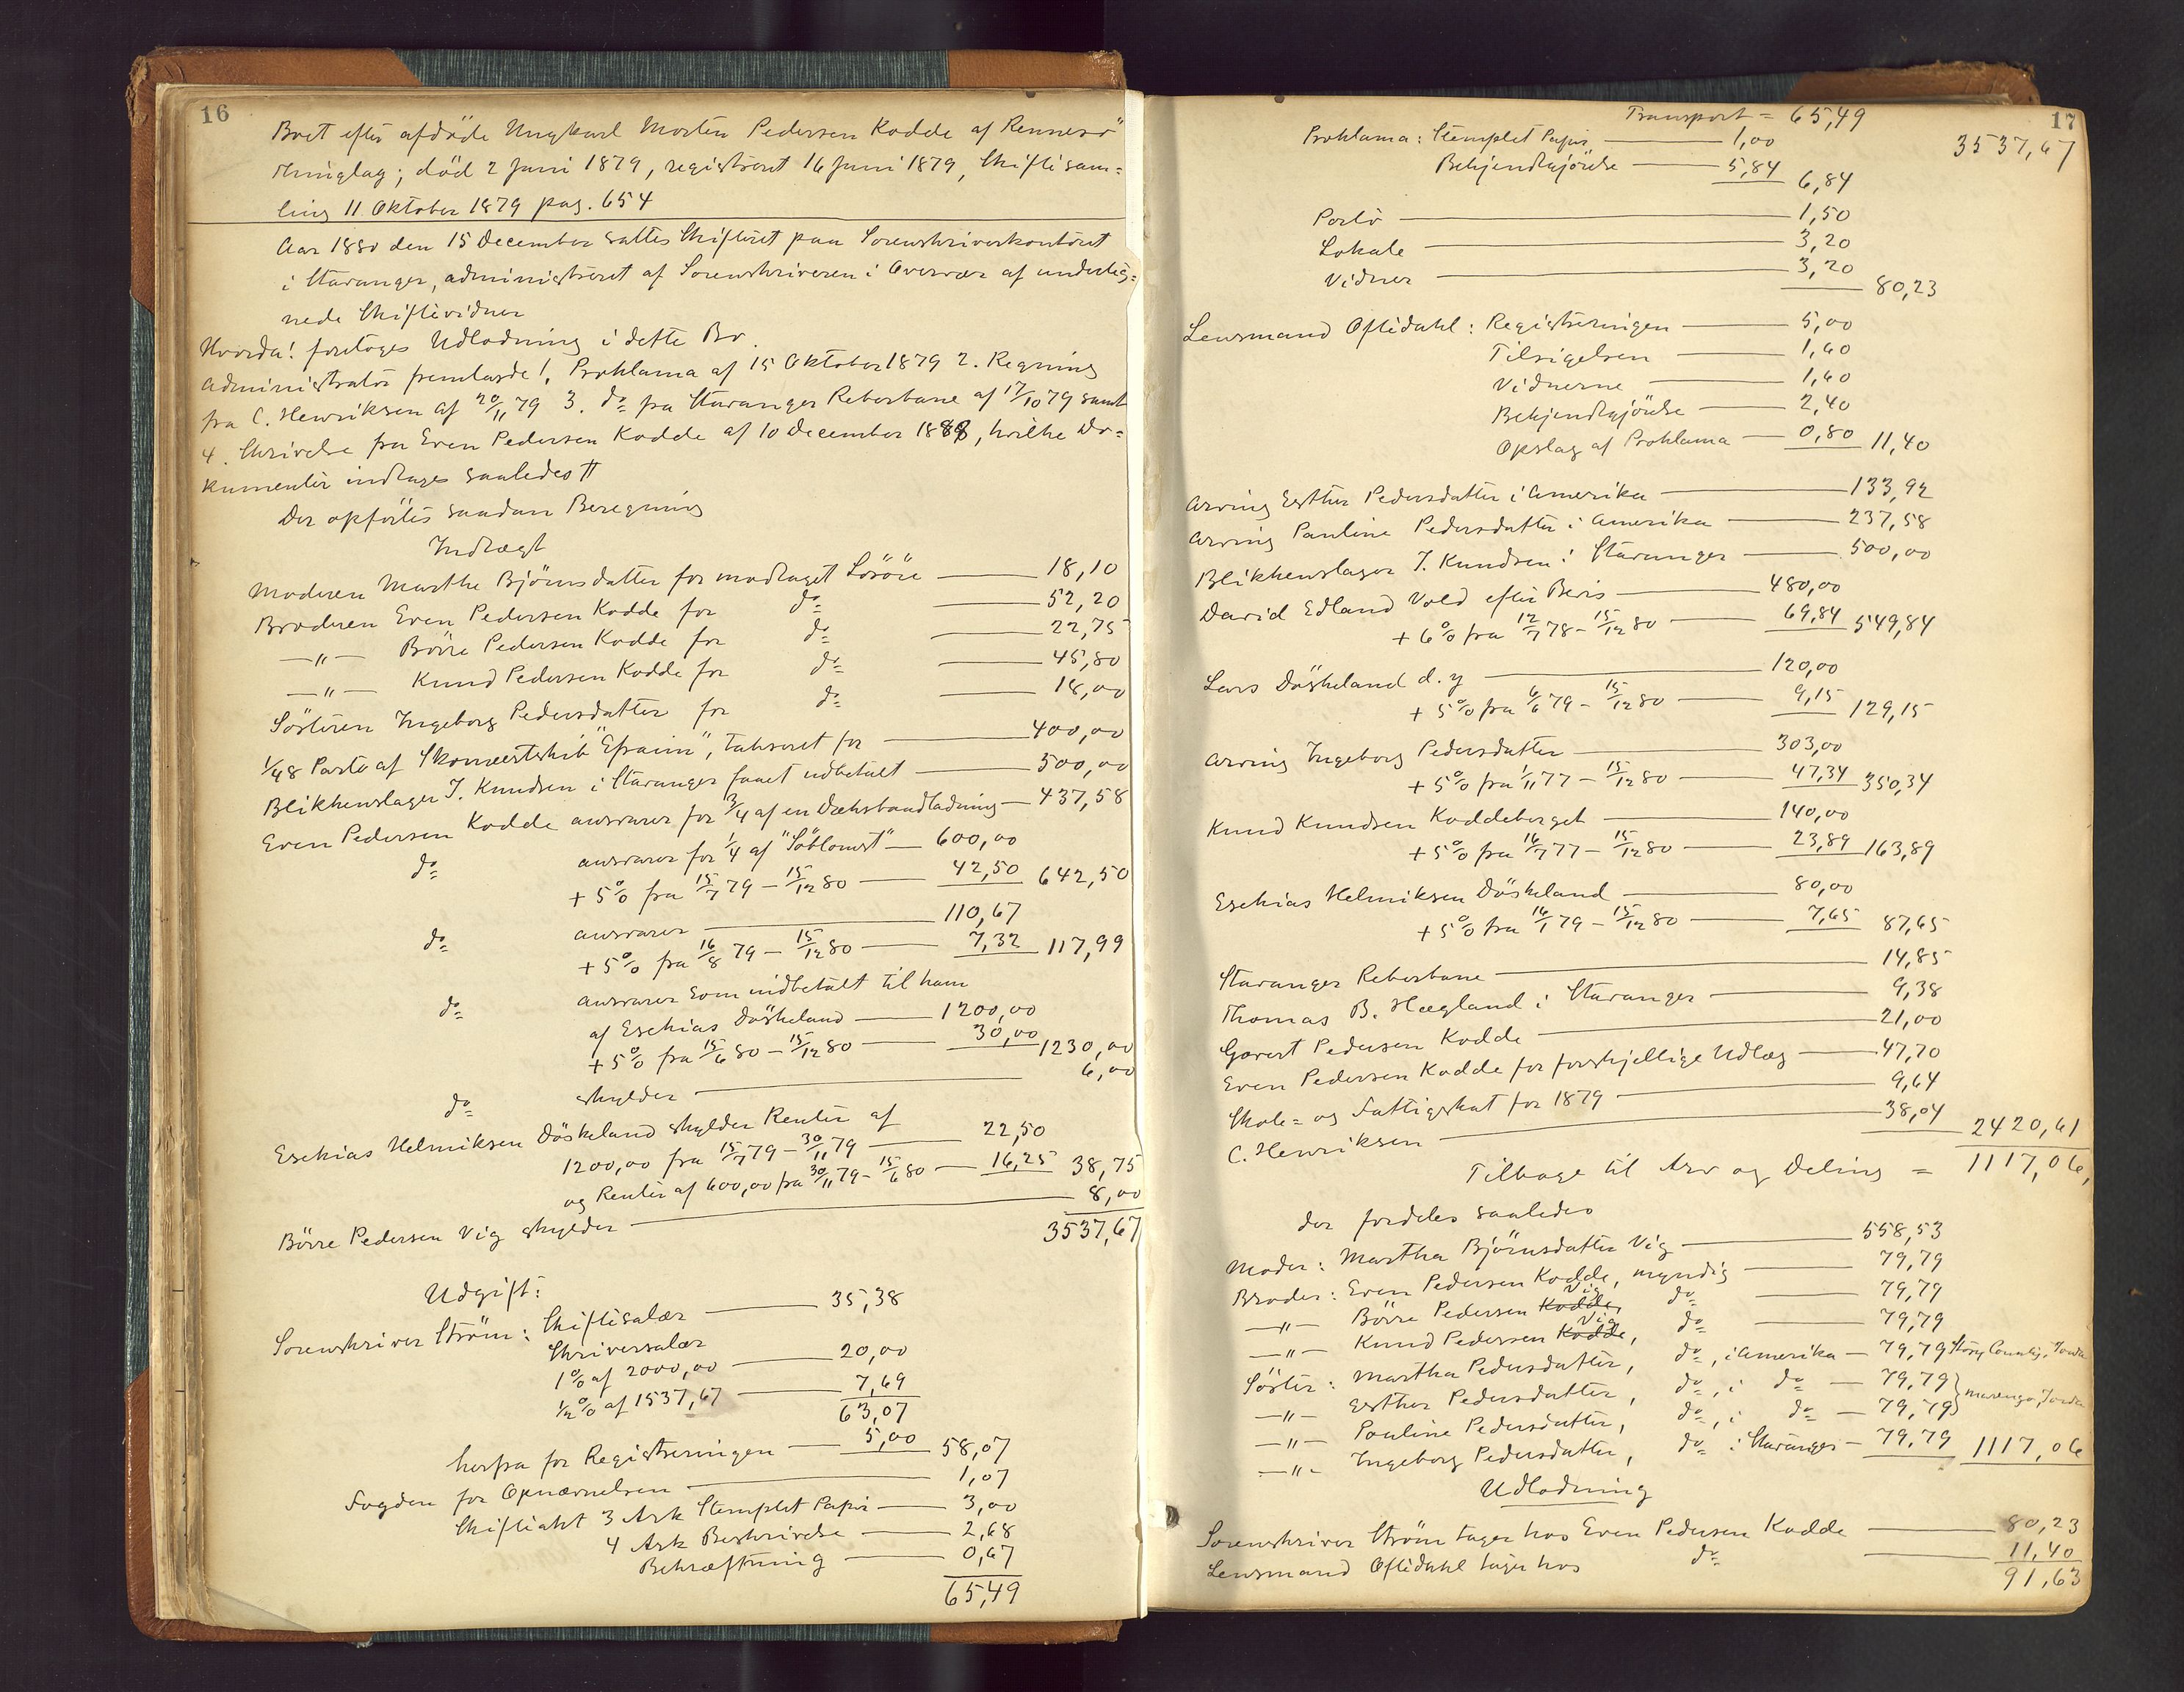 16
Boet efter afdöde Ungkarl Morten Pedersen Kodde af Rennesö
Thinglag; död 2 Juni 1879, registreret 16 Juni 1879, Skiftesam=
ling 11 Oktober 1879 pag. 654
Aar 1880 den 15 December sattes Skifteret paa Sorenskriverkontoret
i Stavanger, administreret af Sorenskriveren i Overvær af underteg=
nede Skiftevidner
Hvorda! foretoges Udlodning i dette Bo.
Administrator fremlagde 1. Proklama af 15 Oktober 1879 2. Regning
fra C. Henriksen af 20/11 79 3. do fra Stavanger Reberbane af 17/10 79 samt
4. Skrivelse fra Even Pedersen Kodde af 10 December 1880, hvilke Do=
kumenter indtages saaledes ††
Der opförtes saadan Beregning
Indtægt
Moderen Marthe Björnsdatter for modtaget Lösöre — 18,10
Broderen Even Pedersen Kodde for do — 52,20
—"— Börre Pedersen Kodde for do — 22,75
—"— Knud Pedersen Kodde for do — 45,80
Sösteren Ingeborg Pedersdatter for do — 18,00
1/48 Parts af Skonnertskib "Efraim", takseret for — 400,00
Blikkenslager J. Knudsen i Stavanger faaet udbetalt — 500,00
Even Pedersen Kodde ansvarer for 3/4 af en Dæksbaadladning — 437,58
do ansvarer for 1/4 af "Söblomst" — 600,00
+ 5% fra 15/7 79 – 15/12 80 — 42,50 642,50
do ansvarer — 110,67
+ 5% fra 16/8 79 – 15/12 80 — 7,32 117,99
do ansvarer som indbetalt til ham
af Esekias Döskeland — 1200,00
+ 5% fra 15/6 80 – 15/12 80 — 30,00 1230,00
do skylder — 6,00
Esekias Helmiksen Döskeland skylder Renter af
1200,00 fra 15/7 79 – 30/11 79 — 22,50
og Renter af 600,00 fra 30/11 79 – 15/6 80 — 16,25 38,75
Börre Pedersen Vig skylder — 8,00
3537,67
Udgift:
Sorenskriver Ström: Skiftesalær — 35,38
Skriversalær
1% af 2000,00 — 20,00
1/2% af 1537,67 — 7,69
63,07
herfra for Registreringen — 5,00 58,07
Fogden for Opnævnelsen — 1,07
Skifteakt 3 Ark Stemplet Papir — 3,00
4 Ark Beskrivelse — 2,68
Bekræftning — 0,67
65,49
17
Transport = 65,49
3537,67
Proklama: Stemplet Papir — 1,00
Bekjendtgjörelse — 5,84 6,84
Porto — 1,50
Lokale — 3,20
Vidner — 3,20 80,23
Lensmand Oftidahl: Registreringen — 5,00
Tilsigelsen — 1,60
Vidnerne — 1,60
Bekjendtgjörelse — 2,40
Opslag af Proklama — 0,80 11,40
Arving Esther Pedersdatter i Amerika — 133,92
Arving Pauline Pedersdatter i Amerika — 237,58
Blikkenslager J. Knudsen i Stavanger — 500,00
David Edland Vold efter Bevis — 480,00
+ 6% fra 12/7 78 – 15/12 80 — 69,84 549,84
Lars Döskeland d.y — 120,00
+ 5% fra 6/6 79 – 15/12 80 — 9,15 129,15
Arving Ingeborg Pedersdatter — 303,00
+ 5% fra 1/11 77 – 15/12 80 — 47,34 350,34
Knud Knudsen Koddeberget — 140,00
+ 5% fra 16/7 77 – 15/12 80 — 23,89 163,89
Esekias Helmiksen Döskeland — 80,00
+ 5% fra 16/1 79 – 15/12 80 — 7,65 87,65
Stavanger Reberbane — 14,85
Thomas B. Hegland i Stavanger — 9,38
Govert Pedersen Kodde — 21,00
Even Pedersen Kodde for forskjellige Udlæg — 47,70
Skole= og Fattigskat for 1879 — 9,64
C. Henriksen — 38,04 2420,61
Tilbage til Arv og Deling = 1117,06,
der fordeles saaledes
Moder: Martha Björnsdatter Vig — 558,53
Broder: Even Pedersen Kodde, myndig — 79,79
—"— Börre Pedersen Kodde, Vig do — 79,79
—"— Knud Pedersen Kodde, Vig do — 79,79
Söster: Martha Pedersdatter, do, i Amerika — 79,79 Story County, Iowa
—"— Esther Pedersdatter, do, i do — 79,79
—"— Pauline Pedersdatter, do, i do — 79,79 } Marengo, Iowa
—"— Ingeborg Pedersdatter, do i Stavanger — 79,79 1117,06
Udlodning
Sorenskriver Ström tager hos Even Pedersen Kodde — 80,23
Lensmand Oftidahl tager hos do — 11,40
91,63